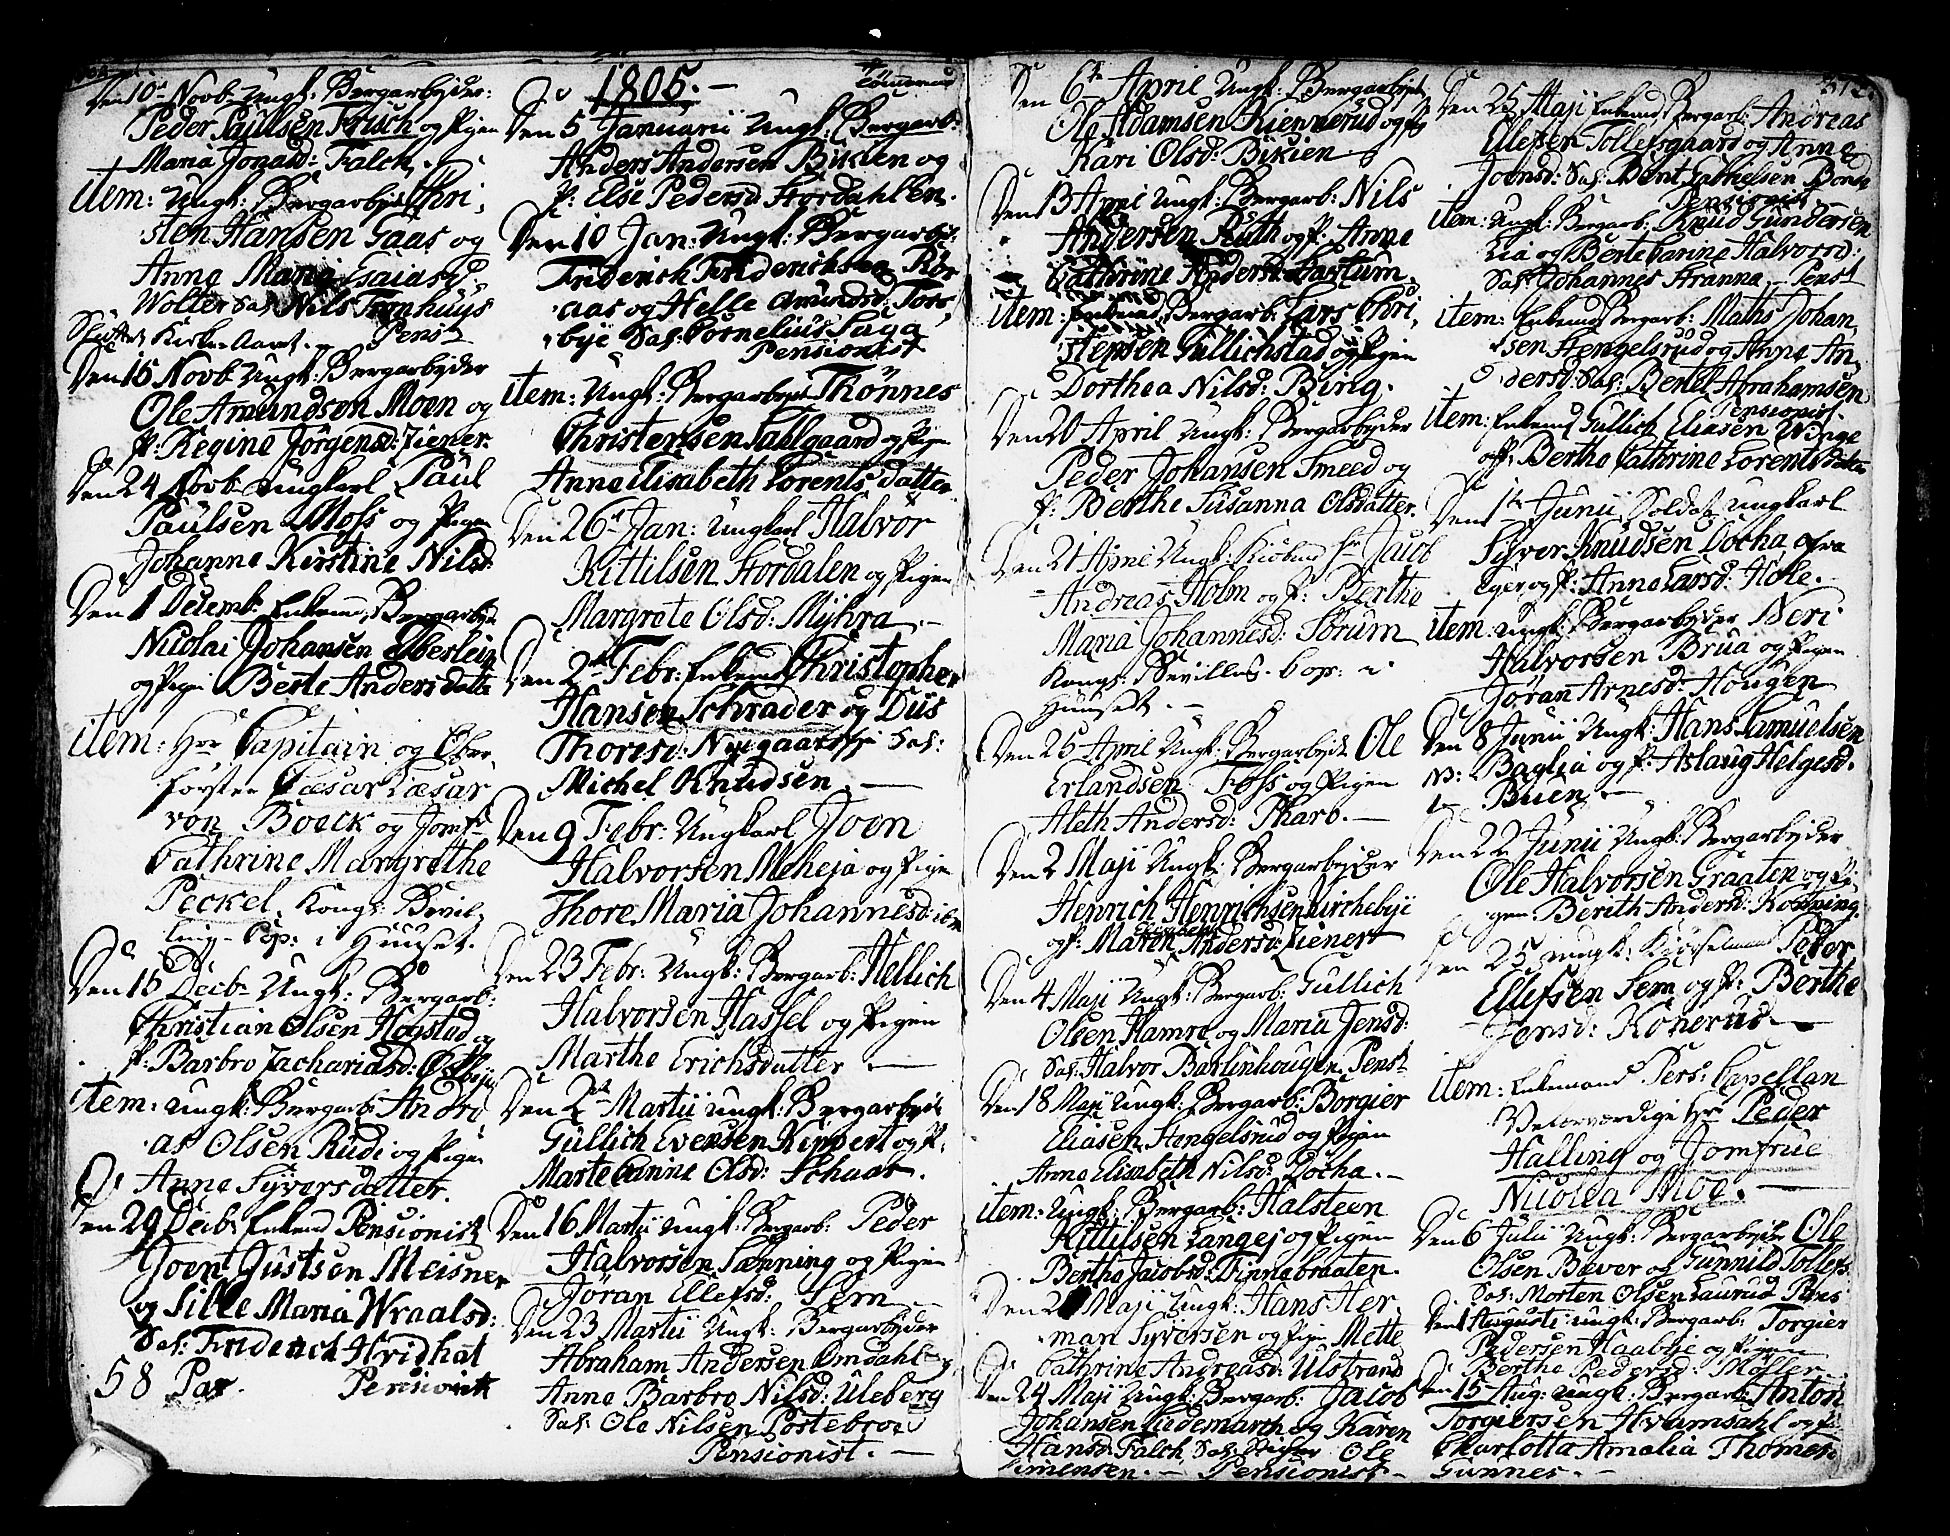 Den 10 Novb. Ungk: Bergarbeyder:
Peder Paulsen Frisch og Pigen
Maria Jonasd: Falck.
item: Ungk: Bergarbeyd: Chri-
sten Hansen Gaas og
Anne Maria Esaiasd:
Wolter Sal: Nils Fornhuus
Sluttet Kirke-Aaret. Penst
Den 15 Novb. Ungk: Bergarbeyder
Ole Amundsen Moen og
P: Regine Jørgensd: Ziener.
Den 24 Novb. Ungkarl Paul
Paulsen Moss og Pigen
Johanne Kirstine Nilsd:
Den 1 Decemb. Enkemd Bergarbeyd:
Nicolai Johansen Eberlein
og Pigen Berte Anders datter
item: Herr Capitain og Ober-
forster Cæsar Læsar
von Boeck og Jomfr
Cathrine Margrethe
Peckel, Kongl: Bevil-
ling - Cop: i Huuset.
Den 15 Decb. Ungk: Bergarb:
Christian Olsen Hogstad og
P: Barbro Zachariasd: Østbye
item: Ungk: Bergarb: Andre-
as Olsen Rudi og Pigen
Anne Syversdatter.
Den 29 Decb. Enkemd Pensionist
Joen Justsen Meisner
og Sille Maria Wraalsd:
Sal: Friderich Hvidhat
58 Par. Pensionist
1805. -
Den 5 Januarii Ungk: Bergarb:
Anders Andersen Bikien og
P: Else Pedersd Stordahlen.
Den 10 Jan: Ungk: Bergarbeyd:
Friderich Friderichsen Rör-
aas og Helle Amundsd: Tors-
bye Sal: Cornelius Saga
Pensionist
item: Ungk: Bergarbeyd: Thønnes
Christensen Sallgaard og Pigen
Anne Elisabeth Lorents datter.
Den 26 Jan: Ungkarl Halvor
Kittilsen Stordalen og Pigen
Margrete Olsd: Myhra. -
Den 2 Febr: Enkemd Christopher
Hansen Schrader og Dus
Thoresd: Nygaard Sal:
Michel Knudsen. -
Den 9 Febr: Ungkarl Joen
Halvorsen Meheja og Pigen
Thore Maria Johannesd: ibm
Den 23 Febr: Ungk: Bergarb: Hellich
Halvorsen Hassel og Pigen
Marthe Erichsdatter -
Den 2 Martii Ungk: Bergarbeyder
Gullich Evensen Kippert og P:
Marte Carine Olsd: Schaar.
Den 16 Martii Ungk: Bergarb: Peder
Halvorsen Lønning og Pigen
Jøran Ellefsd: Sem.
Den 23 Martii Ungk: Bergarbeyder
Abraham Andersen Omdahl og
Anne Barbro Nilsd: Uleberg
Sal: Ole Nilsen Portebroe
Pensionist. -
Den 6 April Ungk: Bergarbeyd:
Ole Adamsen Riennerud og P
Kari Olsd: Bikien.
Den 13 April Ungk: Bergarb: Nils
Andersen Ruth og P: Anne
Cathrine Andersd: Bartum.
item: Enkemd Bergarb: Lars Chri-
stensen Gullichstad og Pigen
Dorthea Nilsd: Bing.
Den 20 April Ungk: Bergarbeyder
Peder Johansen Smeed og
P: Berthe Susanna Olsdatter.
Den 21 April Ungk: Kiøbmd hr Jacob
Andreas Holm og P: Berthe
Maria Johannesd: Sorum
Kongl: Bevilling Cop: i
Huuset. -
Den 25 April Ungk: Bergarbeyd: Ole
Erlandsen Foss og Pigen
Aleth Andersd: Pharb. -
Den 2 Maji Ungk: Bergarbeyder
Henrich Henrichsen Kirchebye
og P: Maren Andersd: Ziener
Den 4 Maji Ungk: Bergarb: Gullich
Olsen Hamre og Maria Jensd:
Sal: Halvor Barlinhougen Penst
Den 18 Maji Ungk: Bergarb: Borgier
Eliasen Stengelsrud og Pigen
Anne Elisabeth Nilsd: Docha. -
item: Ungk: Bergarb: Halsteen
Kittilsen Langej og Pigen
Berthe Jacobsd: Finnebraaten.
Den 2 Maji Ungk: Hans Her-
man Syversen og Pigen Mette
Cathrine Andreasd: Ulstrand
Den 24 Maji Ungk: Bergarb: Jacob
Johansen Lindemarch og Karen
Hansd: Falch Sal: Ole
Simensen. - Pensionist -
Den 25 Maji Enkemd Bergarb: Andreas
Ellefsen Tollefsgaard og Anne
Joensd: Sal: Bent Bonde
Pensionist
item: Ungk: Bergarb: Knud Gundersen
Lia og Berte Carine Halvorsd:
Sal: Johannes Franne Penst
item: Enkemd Bergarb: Maths Johan-
sen Stengelsrud og Anne An-
dersd: Sal: Bertel Abrahamsen
Pensionist.
item: Enkemd Gullich Eliasen Winge
og P: Berthe Cathrine Lorentsdatter
Den 1 Junii Soldat Ungkarl
Syver Knudsen Docha fra
Eger og P: Anne Larsd: Hole.
item: Ungk: Bergarbeyder Neri
Halvorsen Brua og Pigen
Jøran Arnesd: Hougen
Den 8 Junii Ungk: Hans Samuelsen
Baglia og P: Aslaug Helgesd.
Buen. -
Den 22 Junii Ungk: Bergarbeyder
Ole Halvorsen Graaten og Pi-
gen Berith Andersd: Korning.
Den 25 Ungk: Peder
Ellefsen Sem og P: Berthe
Jonsd: Konerud. -
item: Enkemand Pers: Capellan
Velærværdige Hr Peder
Halling og Jomfrue
Nicolea Moe. -
Den 6 Julii Ungk: Bergarbeyd: Ole
Olsen Bever og Gunnild Tollefs:
Sal: Morten Olsen Laurud Pens
Den 1 Augusti Ungk: Bergarb: Torgier
Pedersen Haabye og Pigen
Berthe Pedersd: Møller.
Den 15 Aug: Ungk: Bergarb: Anton
Torgiersen Hvamsahl og P:
Charlotta Amalia Thomesd
Gunnes. -